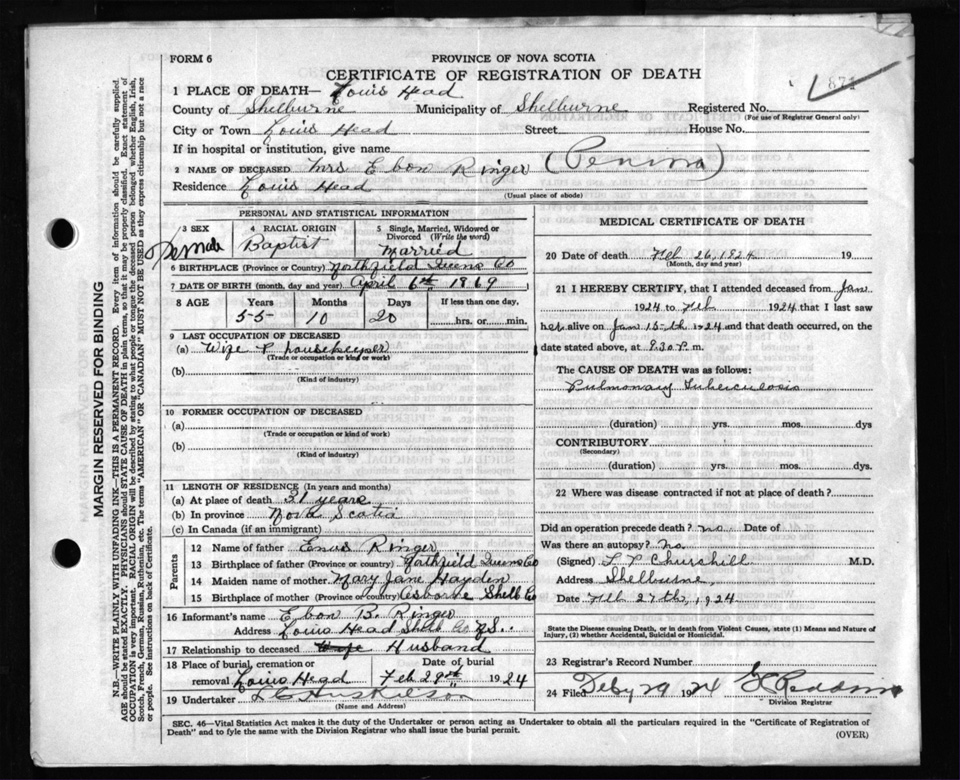 FORM 6
PROVINCE OF NOVA SCOTIA
CERTIFICATE OF REGISTRATION OF DEATH
871
1 PLACE OF DEATH— Louis Head
County of Shelburne Municipality of Shelburne Registered No.
(For use of Registrar General only)
City or Town Louis Head Street House No.
If in hospital or institution, give name
2 NAME OF DECEASED Mrs Ebon Ringer (Penina)
Residence Louis Head
(Usual place of abode)
PERSONAL AND STATISTICAL INFORMATION
3 SEX 4 RACIAL ORIGIN 5 Single, Married, Widowed or Divorced (Write the word)
Female Baptist Married
6 BIRTHPLACE (Province or Country) Northfield Queens Co
7 DATE OF BIRTH (month, day and year) April 6th 1869
8 AGE Years Months Days If less than one day,
55 10 20 hrs. or min.
9 LAST OCCUPATION OF DECEASED
(a) Wife & housekeeper
(Trade or occupation or kind of work)
(b)
(Kind of industry)
10 FORMER OCCUPATION OF DECEASED
(a)
(Trade or occupation or kind of work)
(b)
(Kind of industry)
11 LENGTH OF RESIDENCE (In years and months)
(a) At place of death 31 years
(b) In province Nova Scotia
(c) In Canada (if an immigrant)
Parents
12 Name of father Enos Ringer
13 Birthplace of father (Province or Country) Northfield Queens Co
14 Maiden name of mother Mary Jane Hayden
15 Birthplace of mother (Province or Country) Osborne Shelb Co
16 Informant's name Ebon B. Ringer
Address Louis Head Shelb Co N.S.
17 Relationship to deceased Wife Husband
18 Place of burial, cremation or removal Louis Head Date of burial Feb 29th 1924
19 Undertaker
(Name and Address)
MEDICAL CERTIFICATE OF DEATH
20 Date of death Feb 26, 1924 19
(Month, day and year)
21 I HEREBY CERTIFY, that I attended deceased from Jan
1924 to Feb 1924 that I last saw
her alive on Jan 15-th 1924 and that death occurred, on the
date stated above, at 8.30 P. m.
The CAUSE OF DEATH was as follows:
Pulmonary Tuberculosis
(duration) yrs. mos. dys
CONTRIBUTORY
(Secondary)
(duration) yrs. mos. dys.
22 Where was disease contracted if not at place of death?
Did an operation precede death? no Date of
Was there an autopsy? No.
(Signed) Churchill M.D.
Address Shelburne,
Date Feb 27th, 1924
State the Disease causing Death, or in death from Violent Causes, state (1) Means and Nature of Injury, (2) whether Accidental, Suicidal or Homicidal.
23 Registrar's Record Number
24 Filed Feby 29 1924
Division Registrar
SEC. 46—Vital Statistics Act makes it the duty of the Undertaker or person acting as Undertaker to obtain all the particulars required in the "Certificate of Registration of
Death" and to fyle the same with the Division Registrar who shall issue the burial permit.
(OVER)
MARGIN RESERVED FOR BINDING
N.B.—WRITE PLAINLY WITH UNFADING INK—THIS IS A PERMANENT RECORD. Every item of information should be carefully supplied.
AGE should be stated EXACTLY. PHYSICIANS should STATE CAUSE OF DEATH in plain terms, so that it may be properly classified. Exact statement of
OCCUPATION is very important. RACIAL ORIGIN will be described by stating to what people or tongue the deceased person belonged whether English, Irish,
Scotch, French, German, Russian, Ruthenian, etc. The terms "AMERICAN" OR "CANADIAN" MUST NOT BE USED as they express citizenship but not a race
or people. See instructions on back of Certificate.